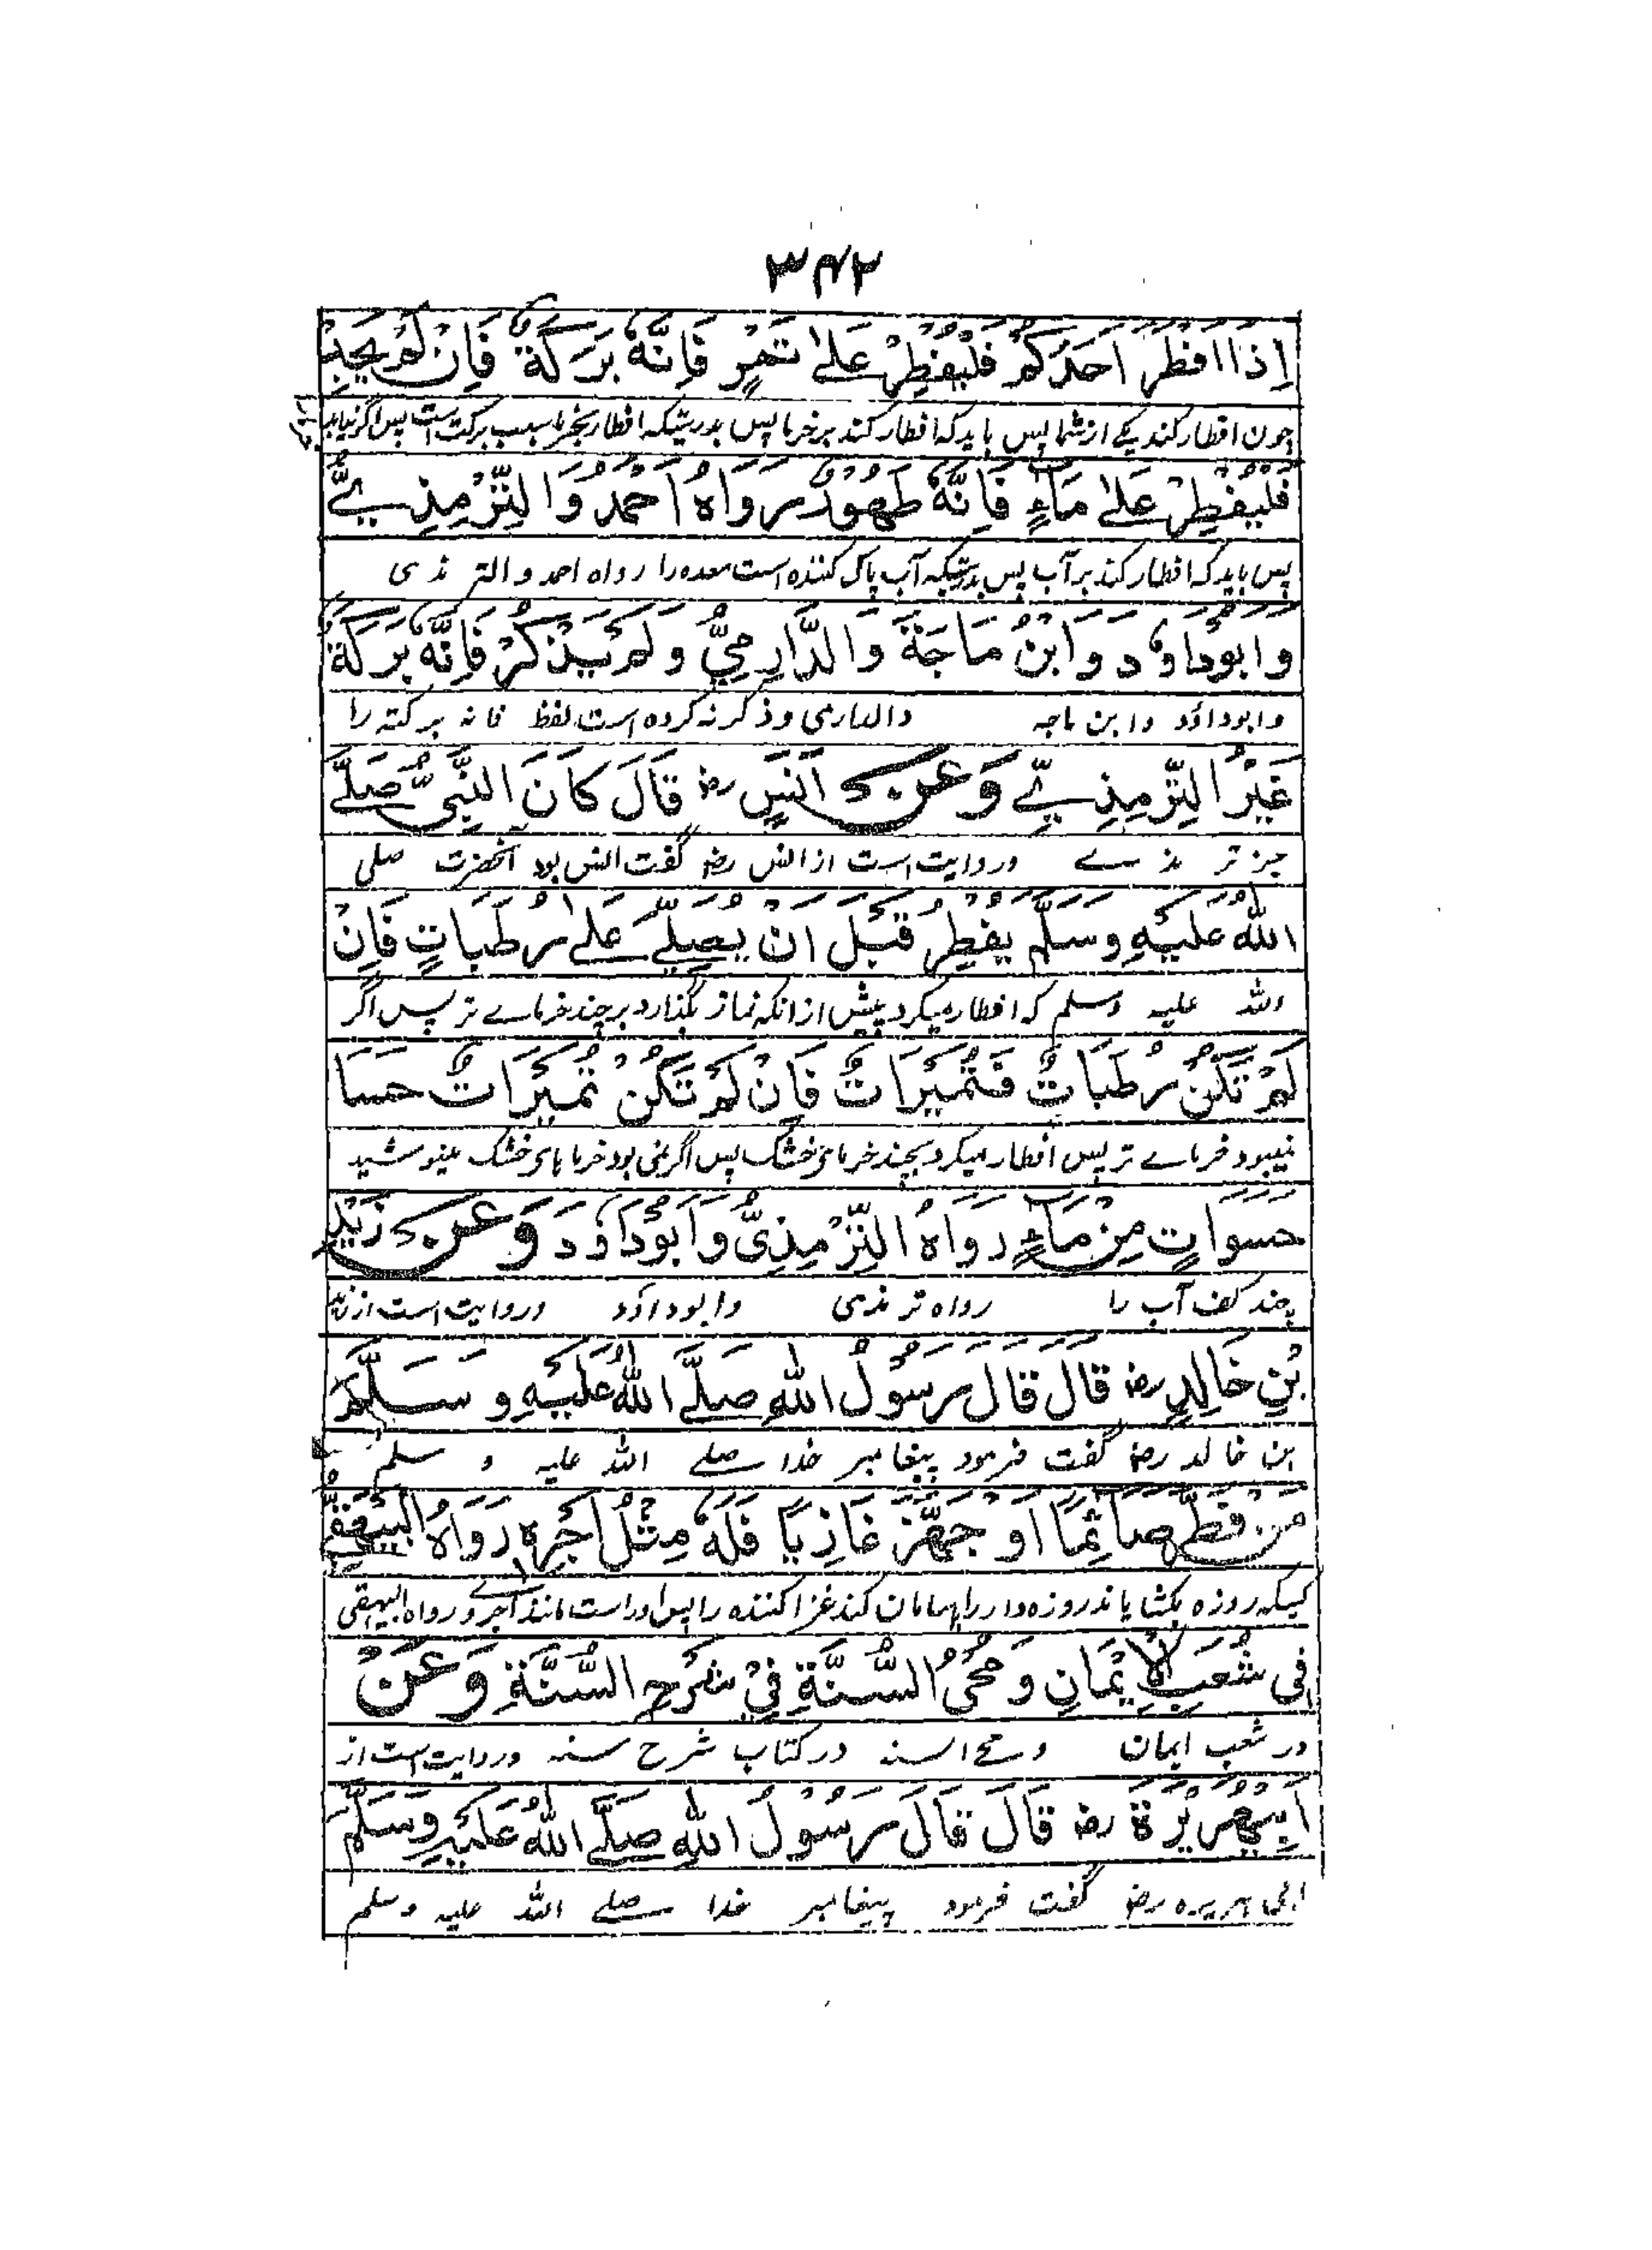 ۳۴۲
اِذَا اَفْطَرَ اَحَدُكُمْ فَلْيُفْطِرْ عَلٰى تَمْرٍ فَاِنَّهٗ بَرَكَةٌ فَاِنْ لَمْ يَجِدْ
چون افطار کند یکے از شما پس باید که افطار کند بر خرما پس بدرستیکه افطار بخرما سبب برکت است پس اگر نیابد
فَلْيُفْطِرْ عَلٰى مَآءٍ فَاِنَّهٗ طَهُوْرٌ رَوَاهُ اَحْمَدُ وَالتِّرْمِذِيُّ
پس باید که افطار کند بر آب پس بدرستیکه آب پاک کننده است معده را رواه احمد و الترمذی
وَاَبُوْدَاوٗدَ وَابْنُ مَاجَةَ وَالدَّارِمِيُّ وَلَمْ يَذْكُرْ فَاِنَّهٗ بَرَكَةٌ
وابوداؤد وابن ماجه والدارمی و ذکر نه کرده است لفظ فانه برکته را
غَيْرُ التِّرْمِذِيِّ وَعَنْ اَنَسٍ رض قَالَ كَانَ النَّبِيُّ صَلَّى
جز ترمذے وروایت است از انس رض گفت انس بود آنحضرت صلی
اللّٰهُ عَلَيْهِ وَسَلَّمَ يُفْطِرُ قَبْلَ اَنْ يُصَلِّيَ عَلٰى رُطَبَاتٍ فَاِنْ
الله علیه وسلم که افطار میکرد پیش از انکه نماز بگذارد بر چند خرماے تر پس اگر
لَمْ تَكُنْ رُطَبَاتٌ فَتُمَيْرَاتٌ فَاِنْ لَمْ تَكُنْ تُمَيْرَاتٌ حَسَا
نمیبود خرماے تر پس افطار میکرد بچند خرمائ خشک پس اگر نمی بود خرما ہائ خشک مینوشید
حَسَوَاتٍ مِنْ مَآءٍ رَوَاهُ التِّرْمِذِىُّ وَاَبُوْدَاوٗدَ وَعَنْ زَيْدِ
چند کف آب را رواه ترمذی وابوداؤد وروایت است از زید
بْنِ خَالِدٍ رض قَالَ قَالَ رَسُوْلُ اللّٰهِ صَلَّى اللّٰهُ عَلَيْهِ وَسَلَّمَ
بن خالد رض گفت فرمود پیغامبر خدا صلے الله علیه و سلم
مَنْ فَطَّرَ صَائِمًا اَوْ جَهَّزَ غَازِيًا فَلَهٗ مِثْلُ اَجْرِهٖ رَوَاهُ الْبَيْهَقِيُّ
کسیکه روزه بکشایاند روزه دار را یا سامان کند غزا کننده را پس او راست مانند اجر او رواه البیهقی
فِى شُعَبِ الْاِيْمَانِ وَمُحْىُ السُّنَّةِ فِيْ شَرْحِ السُّنَّةِ وَعَنْ
در شعب ایمان ومحے السنه در کتاب شرح سنه وروایت است از
اَبِيْ هُرَيْرَةَ رض قَالَ قَالَ رَسُوْلُ اللّٰهِ صَلَّى اللّٰهُ عَلَيْهِ وَسَلَّمَ
ابی هریره رض گفت فرمود پیغامبر خدا صلے الله علیه وسلم